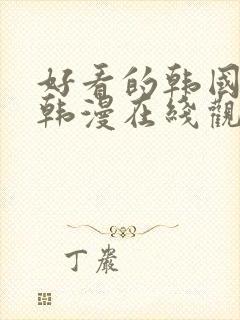 好看的韩国
韩漫在线觀
丁嚴